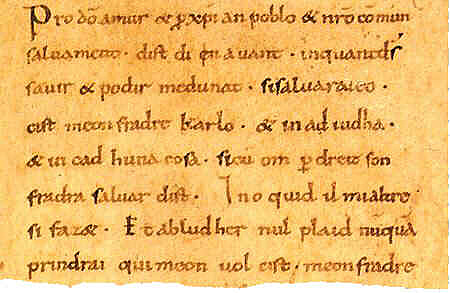 Pro dō amur & ꝓ xp̄ian poblo & nr̄o cōmun
saluament · dist di en auant · inquantd̄s
sauir & podir medunat · sisaluaraieo ·
cist meon fradre Karlo · & in adiudha ·
& in cad huna cosa · sicū om ꝑ dreit son
fradra saluar dist · Ino quid il mialtre
si faz& · Et abludher nul plaid nūquā
prindrai qui meon uol cist · meon fradre